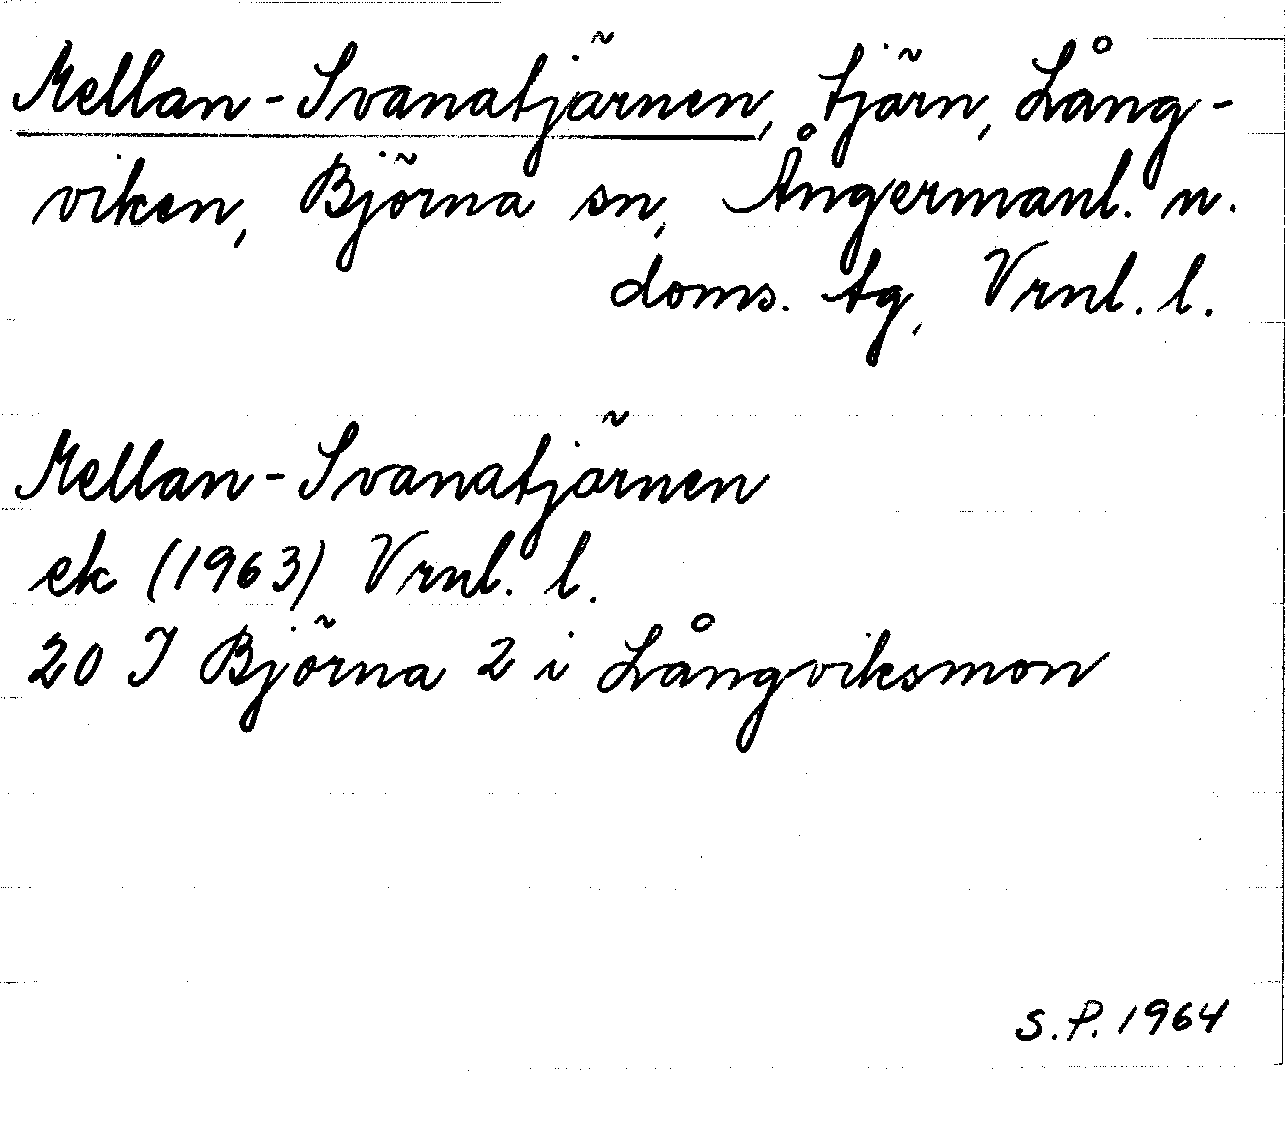 Mellan-Svanatjärnen, tjärn, Lång-
viken, Björna sn, Ångermanl. n.
doms. tg, Vrnl. l.
Mellan-Svanatjärnen
ek (1963) Vrnl. l.
20 I Björna 2 i Långviksmon
S.P. 1964